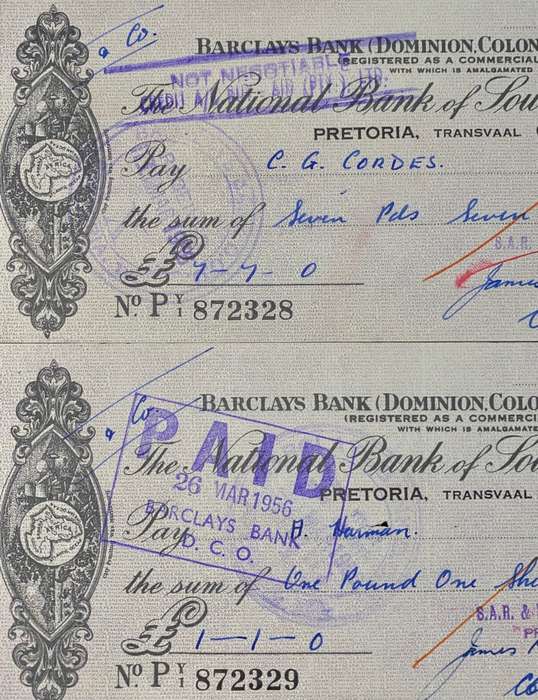 & Co.
BARCLAYS BANK (DOMINION, COLON
(REGISTERED AS A COMMERCIAL
WITH WHICH IS AMALGAMATED
NOT NEGOTIABLE
The National Bank of Sou
PRETORIA, TRANSVAAL
Pay C. G. CORDES.
the sum of Seven Pds Seven
S.A.R.
£ 7-7-0
James
No. P Y/1 872328
& Co.
BARCLAYS BANK (DOMINION, COLO
(REGISTERED AS A COMMERCI
WITH WHICH IS AMALGAMATE
PAID
The National Bank of So
26 MAR 1956
PRETORIA, TRANSVAAL
BARCLAYS BANK
D. C. O.
Pay A. Harman.
the sum of One Pound One Shi
S.A.R. &
£ 1-1-0
James
No. P Y/1 872329